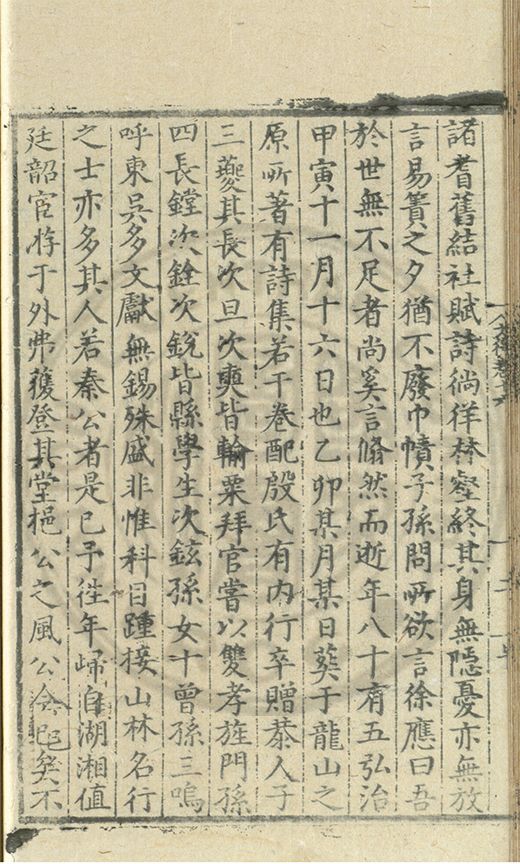 諸耆舊結社賦詩徜徉林壑終其身無隱憂亦無放
言易簀之夕猶不廢巾幘子孫問所欲言徐應曰吾
於世無不足者尚奚言翛然而逝年八十有五弘治
甲寅十一月十六日也乙卯某月某日葬于龍山之
原所著有詩集若干卷配殷氏有内行卒贈恭人子
三夔其長次旦次奭皆輸粟拜官嘗以雙孝旌門孫
四長鏜次銓次銳皆縣學生次鉉孫女十曾孫三嗚
呼東吳多文獻無錫殊盛非惟科目踵接山林名行
之士亦多其人若秦公者是已予徃年歸自湖湘值
廷韶宦游于外弗獲登其堂挹公之風公今已矣不